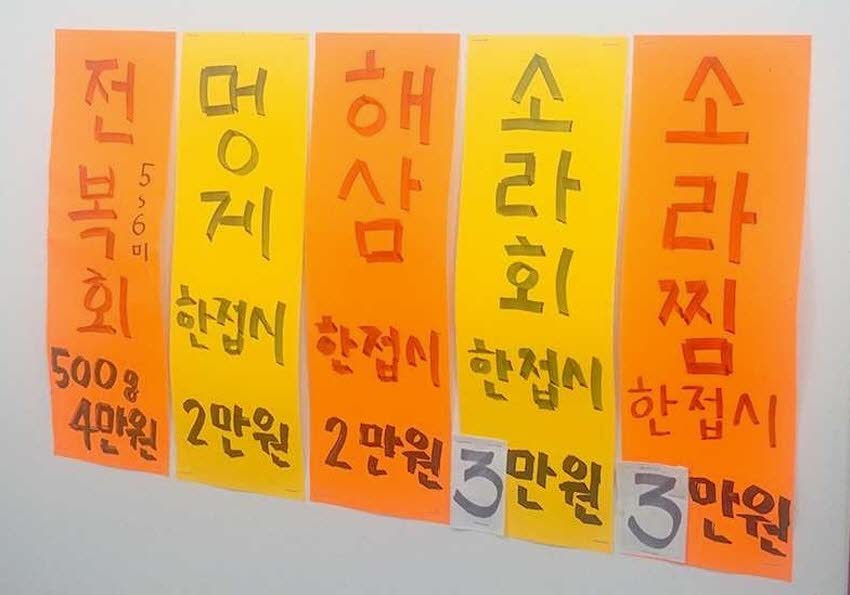 전복회
5~6미
500g
4만원
멍게
한접시
2만원
해삼
한접시
2만원
소라회
한접시
3만원
소라찜
한접시
3만원